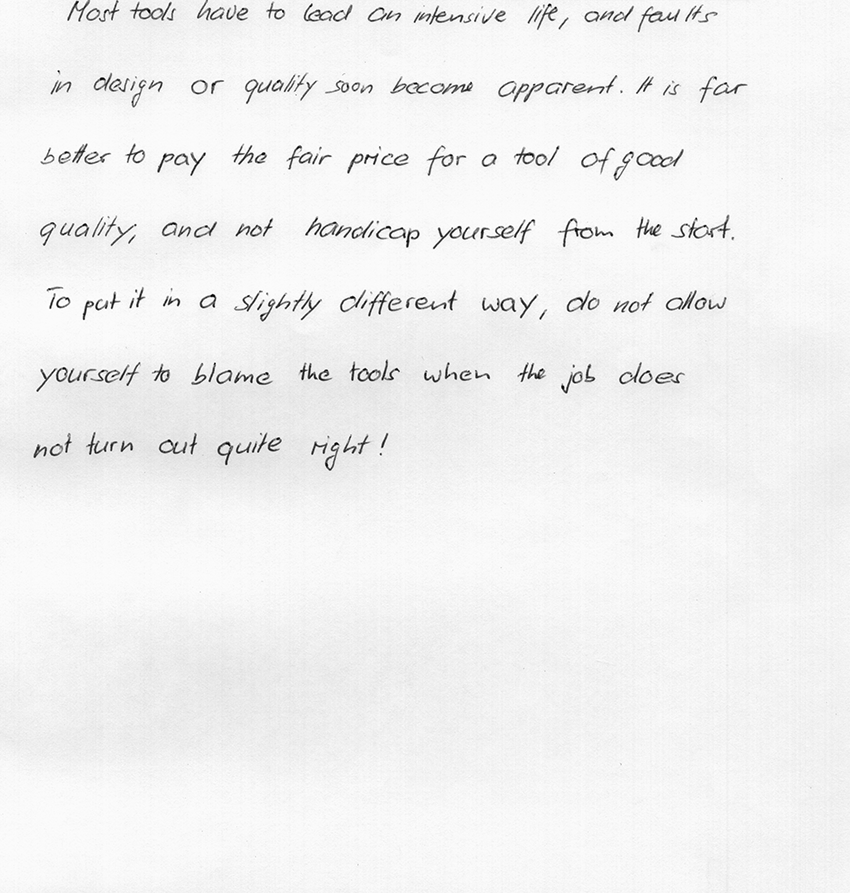 Most tools have to lead an intensive life, and faults
in design or quality soon become apparent. It is far
better to pay the fair price for a tool of good
quality, and not handicap yourself from the start.
To put it in a slightly different way, do not allow
yourself to blame the tools when the job does
not turn out quite right!